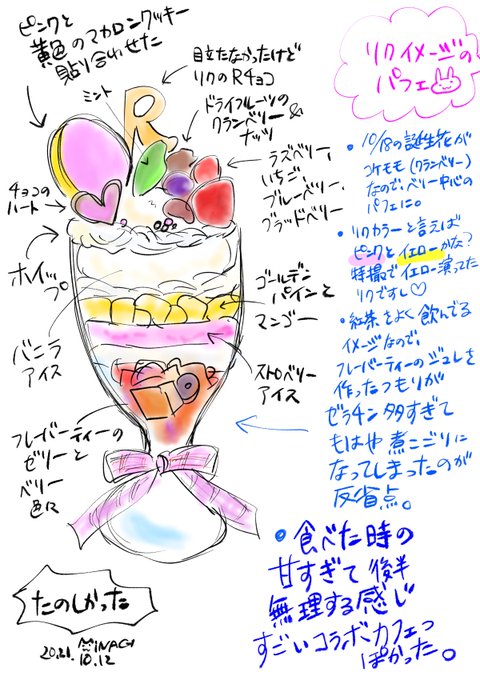 ピンクと
黄色のマカロンクッキー
貼り合わせた
目立たなかったけど
リクのRチョコ
ミント
ドライフルーツの
クランベリー&
ナッツ
ラズベリー、
いちご、
ブルーベリー、
ブラッドベリー
チョコの
ハート
ホイップ
バニラ
アイス
ゴールデン
パインと
マンゴー
ストロベリー
アイス
フレーバーティーの
ゼリーと
ベリー
色に
たのしかった
2021. MINAGI
10.12
リクイメージの
パフェ
• 10/18の誕生花が
コケモモ(クランベリー)
なので、ベリー中心の
パフェに。
• リクカラーと言えば
ピンクとイエローかな?
特撮でイエロー演ってた
リクですし♡
• 紅茶をよく飲んでる
イメージなので、
フレーバーティーのジュレを
作ったつもりが
ゼラチン多すぎて
もはや煮こごりに
なってしまったのが
反省点。
• 食べた時の
甘すぎて後半
無理する感じ
すごいコラボカフェっ
ぽかった。